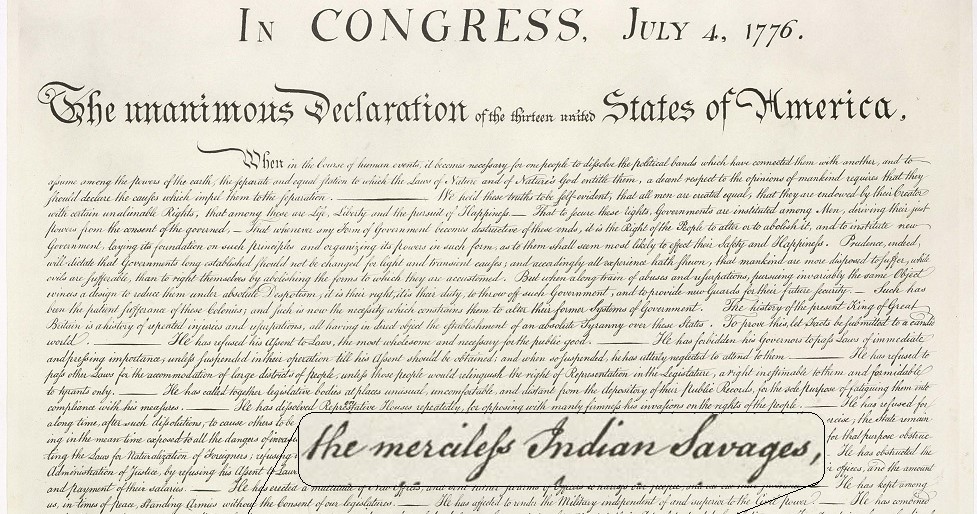 In CONGRESS, July 4, 1776.
The unanimous Declaration of the thirteen united States of America,
When in the Course of human events, it becomes necessary for one people to dissolve the political bands which have connected them with another, and to
assume among the powers of the earth, the separate and equal station to which the Laws of Nature and of Nature's God entitle them, a decent respect to the opinions of mankind requires that they
should declare the causes which impel them to the separation. — We hold these truths to be self-evident, that all men are created equal, that they are endowed by their Creator
with certain unalienable Rights, that among these are Life, Liberty and the pursuit of Happiness. — That to secure these rights, Governments are instituted among Men, deriving their just
powers from the consent of the governed, — That whenever any Form of Government becomes destructive of these ends, it is the Right of the People to alter or to abolish it, and to institute new
Government, laying its foundation on such principles and organizing its powers in such form, as to them shall seem most likely to effect their Safety and Happiness. Prudence, indeed,
will dictate that Governments long established should not be changed for light and transient causes; and accordingly all experience hath shewn, that mankind are more disposed to suffer, while
evils are sufferable, than to right themselves by abolishing the forms to which they are accustomed. But when a long train of abuses and usurpations, pursuing invariably the same Object
evinces a design to reduce them under absolute Despotism, it is their right, it is their duty, to throw off such Government, and to provide new Guards for their future security. — Such has
been the patient sufferance of these Colonies; and such is now the necessity which constrains them to alter their former Systems of Government. The history of the present King of Great
Britain is a history of repeated injuries and usurpations, all having in direct object the establishment of an absolute Tyranny over these States. To prove this, let Facts be submitted to a candid
world. — He has refused his Assent to Laws, the most wholesome and necessary for the public good. — He has forbidden his Governors to pass Laws of immediate
and pressing importance, unless suspended in their operation till his Assent should be obtained; and when so suspended, he has utterly neglected to attend to them. — He has refused to
pass other Laws for the accommodation of large districts of people, unless those people would relinquish the right of Representation in the Legislature, a right inestimable to them and formidable
to tyrants only. — He has called together legislative bodies at places unusual, uncomfortable, and distant from the depository of their Public Records, for the sole purpose of fatiguing them into
compliance with his measures. — He has dissolved Representative Houses repeatedly, for opposing with manly firmness his invasions on the rights of the people. — He has refused for
a long time, after such dissolutions, to cause others to be
rcise, the State remain
ing in the mean time exposed to all the dangers of invasi
for that purpose obstruc
ting the Laws for Naturalization of Foreigners; refusing
He has obstructed the
the merciless Indian Savages,
Administration of Justice, by refusing his Assent to Laws
ir offices, and the amount
and payment of their salaries. — He has erected a multitude of New Offices, and
He has kept among
us, in times of peace, Standing Armies without the Consent of our legislatures. — He has affected to render the Military independent of and superior to the Civil power. — He has combined